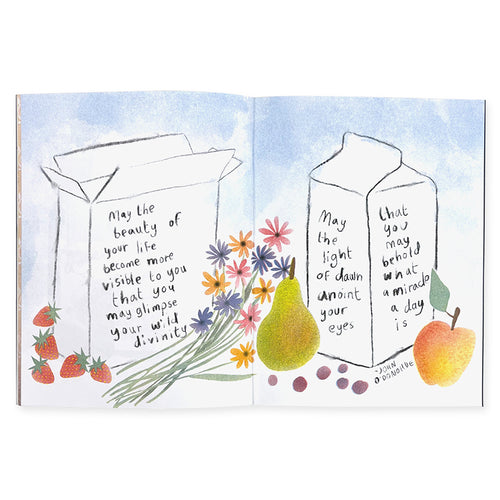 may the
beauty of
your life
become more
visible to you
that you
may glimpse
your wild
divinity
May
the
light
of dawn
anoint
your
eyes
that
you
may
behold
what
a miracle
a day
is
-JOHN
O'DONOHUE